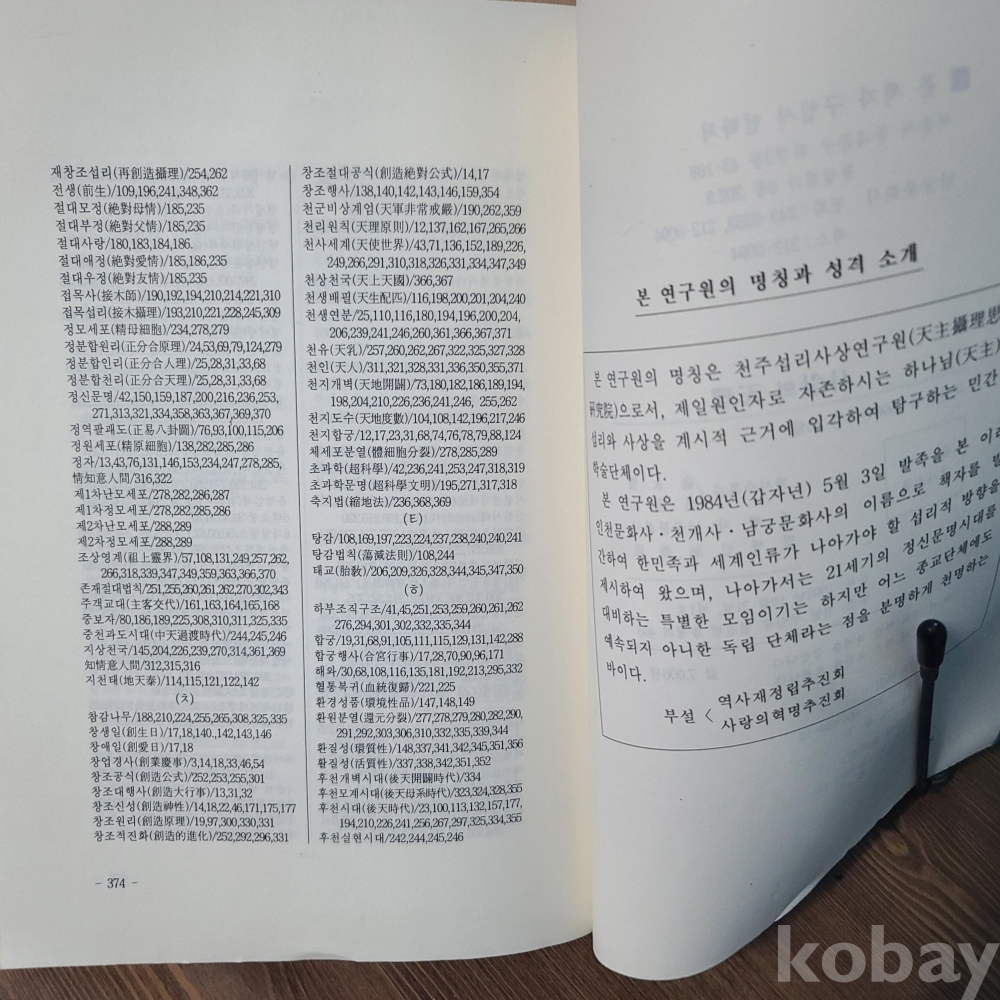 재창조섭리(再創造攝理)/254,262
전생(前生)/109,196,241,348,362
절대모정(絶對母情)/185,235
절대부정(絶對父情)/185,235
절대사랑/180,183,184,186.
절대애정(絶對愛情)/185,186,235
절대우정(絶對友情)/185,235
접목사(接木師)/190,192,194,210,214,221,310
접목섭리(接木攝理)/193,210,221,228,245,309
정모세포(精母細胞)/234,278,279
정분합원리(正分合原理)/24,53,69,79,124,279
정분합인리(正分合人理)/25,28,31,33,68
정분합천리(正分合天理)/25,28,31,33,68
정신문명/42,150,159,187,200,216,236,253,
271,313,321,334,358,363,367,369,370
정역팔괘도(正易八卦圖)/76,93,100,115,206
정원세포(精原細胞)/138,282,285,286
정자/13,43,76,131,146,153,234,247,278,285,
情知意人間/316,322
제1차난모세포/278,282,286,287
제1차정모세포/278,282,285,286
제2차난모세포/288,289
제2차정모세포/288,289
조상영계(祖上靈界)/57,108,131,249,257,262,
266,318,339,347,349,359,363,366,370
존재절대법칙/251,255,260,261,262,270,302,343
주객교대(主客交代)/161,163,164,165,168
중보자/80,186,189,225,308,310,311,325,335
중천과도시대(中天過渡時代)/244,245,246
지상천국/145,204,226,239,270,314,361,369
知情意人間/312,315,316
지천태(地天泰)/114,115,121,122,142
(ㅊ)
참감나무/188,210,224,255,265,308,325,335
창생일(創生日)/17,18,140,,142,143,146
창애일(創愛日)/17,18
창업경사(創業慶事)/3,14,18,33,46,54
창조공식(創造公式)/252,253,255,301
창조대행사(創造大行事)/13,31,32
창조신성(創造神性)/14,18,22,46,171,175,177
창조원리(創造原理)/19,97,300,330,331
창조적진화(創造的進化)/252,292,296,331
창조절대공식(創造絶對公式)/14,17
창조행사/138,140,142,143,146,159,354
천군비상계엄(天軍非常戒嚴)/190,262,359
천리원칙(天理原則)/12,137,162,167,265,266
천사세계(天使世界)/43,71,136,152,189,226,
249,266,291,310,318,326,331,334,347,349
천상천국(天上天國)/366,367
천생배필(天生配匹)/116,198,200,201,204,240
천생연분/25,110,116,180,194,196,200,204,
206,239,241,246,260,361,366,367,371
천유(天乳)/257,260,262,267,322,325,327,328
천인(天人)/311,321,328,331,336,350,355,371
천지개벽(天地開闢)/73,180,182,186,189,194,
198,204,210,226,236,241,246, 255,262
천지도수(天地度數)/104,108,142,196,217,246
천지합궁/12,17,23,31,68,74,76,78,79,88,124
체세포분열(體細胞分裂)/278,285,289
초과학(超科學)/42,236,241,253,247,318,319
초과학문명(超科學文明)/195,271,317,318
축지법(縮地法)/236,368,369
(ㅌ)
탕감/108,169,197,223,224,237,238,240,240,241
탕감법칙(蕩減法則)/108,244
태교(胎敎)/206,209,326,328,344,345,347,350
(ㅎ)
하부조직구조/41,45,251,253,259,260,261,262
276,294,301,302,332,335,344
합궁/19,31,68,91,105,111,115,129,131,142,288
합궁행사(合宮行事)/17,28,70,90,96,171
해와/30,68,108,116,135,181,192,213,295,332
혈통복귀(血統復歸)/221,225
환경성품(環境性品)/147,148,149
환원분열(還元分裂)/277,278,279,280,282,290,
291,292,303,306,310,332,335,339,344
환질성(環質性)/148,337,341,342,345,351,356
활질성(活質性)/337,338,342,351,352
후천개벽시대(後天開闢時代)/334
후천모계시대(後天母系時代)/323,324,328,355
후천시대(後天時代)/23,100,113,132,157,177,
194,210,226,241,256,267,297,325,334,355
후천실현시대/242,244,245,246
- 374 -
본 연구원의 명칭과 성격 소개
본 연구원의 명칭은 천주섭리사상연구원(天主攝理思
硏究院)으로서, 제일원인자로 자존하시는 하나님(天主)
섭리와 사상을 계시적 근거에 입각하여 탐구하는 민간
학술단체이다.
본 연구원은 1984년(갑자년) 5월 3일 발족을 본 이래
인천문화사·천개사·남궁문화사의 이름으로 책자를 발
간하여 한민족과 세계인류가 나아가야 할 섭리적 방향을
제시하여 왔으며, 나아가서는 21세기의 정신문명시대를
대비하는 특별한 모임이기는 하지만 어느 종교단체에도
예속되지 아니한 독립 단체라는 점을 분명하게 천명하는
바이다.
부설 < 역사재정립추진회
사랑의혁명추진회
kobay